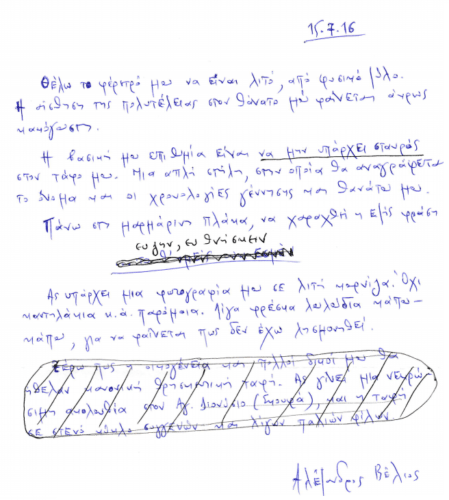 15.7.16
Θέλω το φέρετρό μου να είναι λιτό, από φυσικό ξύλο.
Η αίσθηση της πολυτέλειας στον θάνατο μού φαίνεται άκρως
κακόγουστη.
Η βασική μου επιθυμία είναι να μην υπάρχει σταυρός
στον τάφο μου. Μια απλή στήλη, στην οποία θα αναγράφεται
το όνομα και οι χρονολογίες γέννησης και θανάτου μου.
Πάνω στη μαρμάρινη πλάκα, να χαραχθεί η εξής φράση
ευ ζην, ευ θνήσκειν
Ας υπάρχει μια φωτογραφία μου σε λιτή κορνίζα. Όχι
καντηλάκια κ.ά. παρόμοια. Λίγα φρέσκα λουλούδια κάπου-
κάπου, για να φαίνεται πως δεν έχω λησμονηθεί.
Ξέρω πως η οικογένεια και πολλοί δικοί μου θα
ήθελαν κανονική θρησκευτική ταφή. Ας γίνει μια νεκρώ-
σιμη ακολουθία στον Αγ. Διονύσιο (Σκουφά), και η ταφή
σε στενό κύκλο συγγενών και λίγων παλιών φίλων
Αλέξανδρος Βέλιος